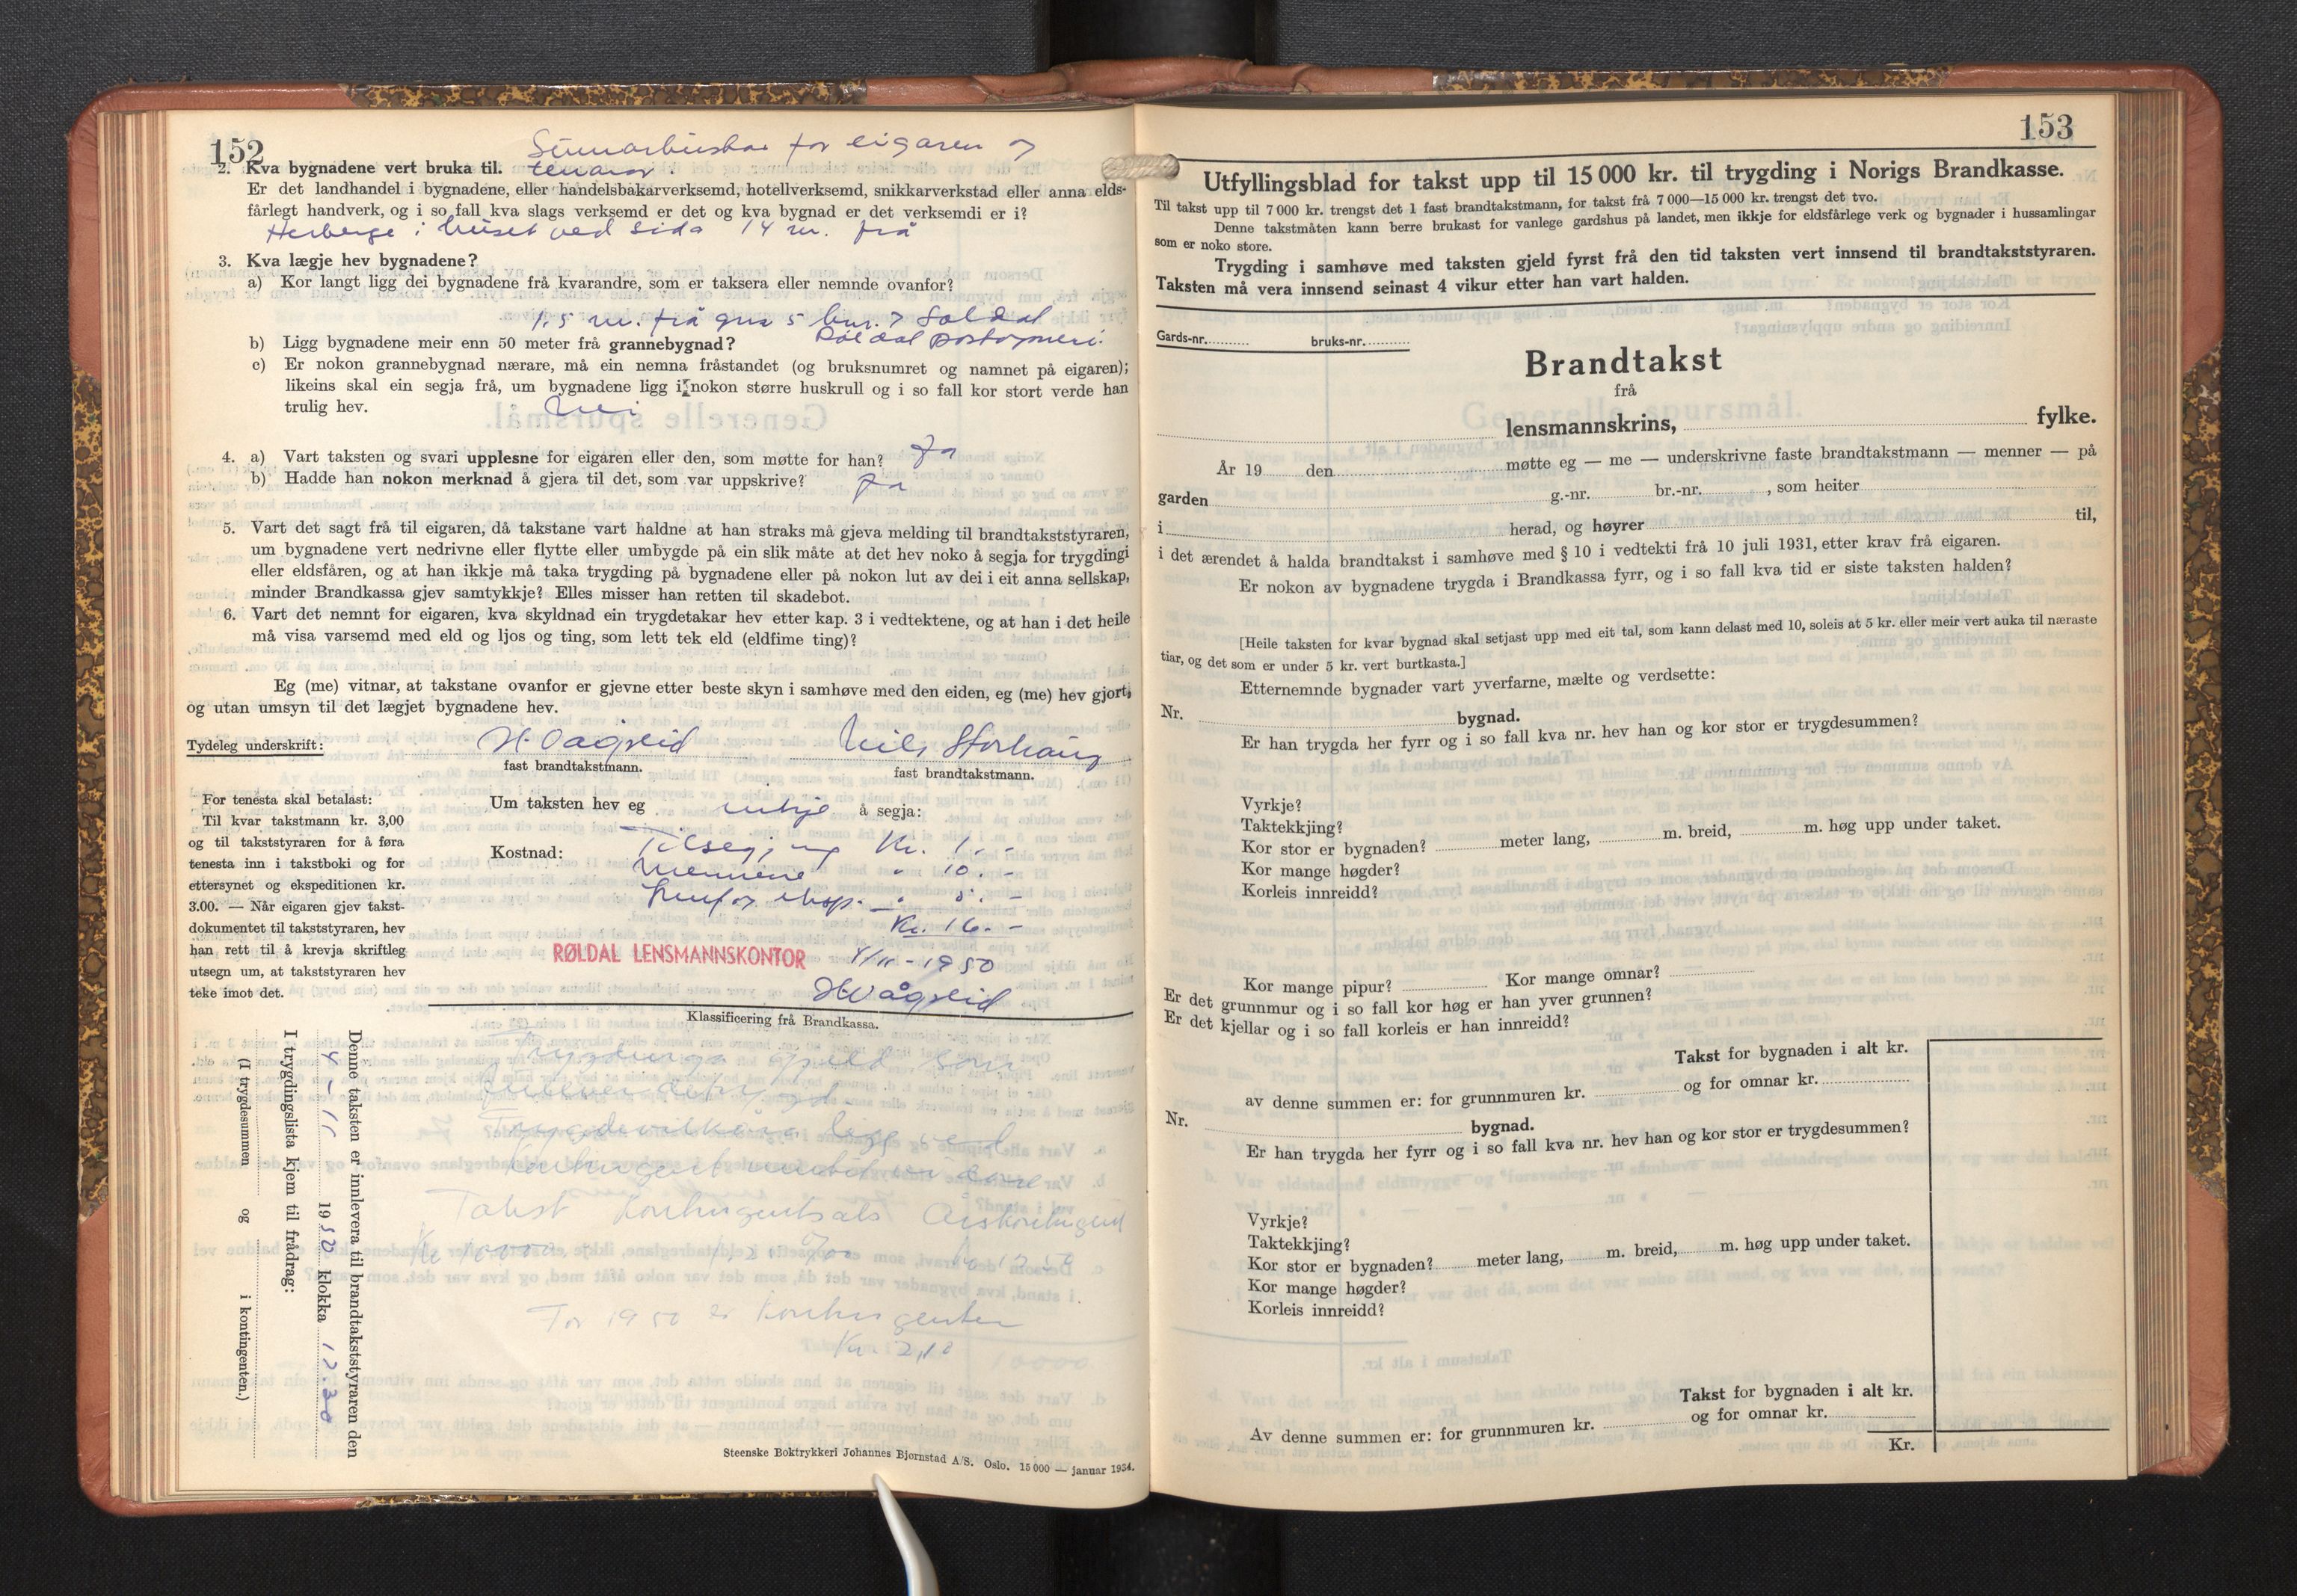 152
Sumarbustad for eigaren og
2. Kva bygnadene vert bruka til. tenarar.
Er det landhandel i bygnadene, eller handelsbakarverksemd, hotellverksemd, snikkarverkstad eller anna elds-
fårlegt handverk, og i so fall kva slags verksemd er det og kva bygnad er det verksemdi er i?
Herberge i huset ved sida 14 m. frå
3. Kva lægje hev bygnadene?
a) Kor langt ligg dei bygnadene frå kvarandre, som er taksera eller nemnde ovanfor?
1.5 m. frå gnr 5 bnr. 7
Røldal postopneri.
b) Ligg bygnadene meir enn 50 meter frå grannebygnad?
c) Er nokon grannebygnad nærare, må ein nemna fråstandet (og bruksnumret og namnet på eigaren);
likeins skal ein segja frå, um bygnadene ligg i nokon større huskrull og i so fall kor stort verde han
trulig hev. Nei
4. a) Vart taksten og svari upplesne for eigaren eller den, som møtte for han? Ja
b) Hadde han nokon merknad å gjera til det, som var uppskrive? Ja
5. Vart det sagt frå til eigaren, då takstane vart haldne at han straks må gjeva melding til brandtakststyraren,
um bygnadene vert nedrivne eller flytte eller umbygde på ein slik måte at det hev noko å segja for trygdingi
eller eldsfåren, og at han ikkje må taka trygding på bygnadene eller på nokon lut av dei i eit anna sellskap,
minder Brandkassa gjev samtykkje? Elles misser han retten til skadebot.
6. Vart det nemnt for eigaren, kva skyldnad ein trygdetakar hev etter kap. 3 i vedtektene, og at han i det heile
må visa varsemd med eld og ljos og ting, som lett tek eld (eldfime ting)?
Eg (me) vitnar, at takstane ovanfor er gjevne etter beste skyn i samhøve med den eiden, eg (me) hev gjort,
og utan umsyn til det lægjet bygnadene hev.
Tydeleg underskrift: H. Vågslid Nils Storhaug
fast brandtakstmann. fast brandtakstmann.
For tenesta skal betalast:
Til kvar takstmann kr. 3,00
og til takststyraren for å føra
tenesta inn i takstboki og for
ettersynet og ekspeditionen kr.
3.00. — Når eigaren gjev takst-
dokumentet til takststyraren, hev
han rett til å krevja skriftleg
utsegn um, at takststyraren hev
teke imot det.
Um taksten hev eg inkje å segja:
Kostnad: Tilsegjing Kr. 1.-
Mennene " 10.-
Innf. og eksp. " 5.-
Kr. 16.-
RØLDAL LENSMANNSKONTOR 4/11-1950
H Vågslid
Klassificering frå Brandkassa.
Trygdinga gjeld som
Trygdevilkåra ligg ved
Takst Kontingentsats Årskontingent
Kr 10000 1.25 ‰ Kr 12.50
For 1950 er kontingenten
Kr 2,10
Denne taksten er innlevera til brandtakststyraren den
4-11 1950 klokka 12.30
I trygdingslista kjem til frådrag:
(I trygdesummen og i kontingenten.)
Steenske Boktrykkeri Johannes Bjørnstad A/S. Oslo. 15 000 — januar 1934.
153
Utfyllingsblad for takst upp til 15 000 kr. til trygding i Norigs Brandkasse.
Til takst upp til 7 000 kr. trengst det 1 fast brandtakstmann, for takst frå 7 000—15 000 kr. trengst det tvo.
Denne takstmåten kann berre brukast for vanlege gardshus på landet, men ikkje for eldsfårlege verk og bygnader i hussamlingar
som er noko store.
Trygding i samhøve med taksten gjeld fyrst frå den tid taksten vert innsend til brandtakststyraren.
Taksten må vera innsend seinast 4 vikur etter han vart halden.
Gards-nr. bruks-nr.
Brandtakst
frå
lensmannskrins, fylke.
År 19 den møtte eg — me — underskrivne faste brandtakstmann — menner — på
garden g.-nr. br.-nr. , som heiter
i herad, og høyrer til,
i det ærendet å halda brandtakst i samhøve med § 10 i vedtekti frå 10 juli 1931, etter krav frå eigaren.
Er nokon av bygnadene trygda i Brandkassa fyrr, og i so fall kva tid er siste taksten halden?
[Heile taksten for kvar bygnad skal setjast upp med eit tal, som kann delast med 10, soleis at 5 kr. eller meir vert auka til næraste
tiar, og det som er under 5 kr. vert burtkasta.]
Etternemnde bygnader vart yverfarne, mælte og verdsette:
Nr. bygnad.
Er han trygda her fyrr og i so fall kva nr. hev han og kor stor er trygdesummen?
Vyrkje?
Taktekkjing?
Kor stor er bygnaden? meter lang, m. breid, m. høg upp under taket.
Kor mange høgder?
Korleis innreidd?
Kor mange pipur? Kor mange omnar?
Er det grunnmur og i so fall kor høg er han yver grunnen?
Er det kjellar og i so fall korleis er han innreidd?
Takst for bygnaden i alt kr.
av denne summen er: for grunnmuren kr. og for omnar kr.
Nr. bygnad.
Er han trygda her fyrr og i so fall kva nr. hev han og kor stor er trygdesummen?
Vyrkje?
Taktekkjing?
Kor stor er bygnaden? meter lang, m. breid, m. høg upp under taket.
Kor mange høgder?
Korleis innreidd?
Takst for bygnaden i alt kr.
Av denne summen er: for grunnmuren kr. og for omnar kr.
Kr.